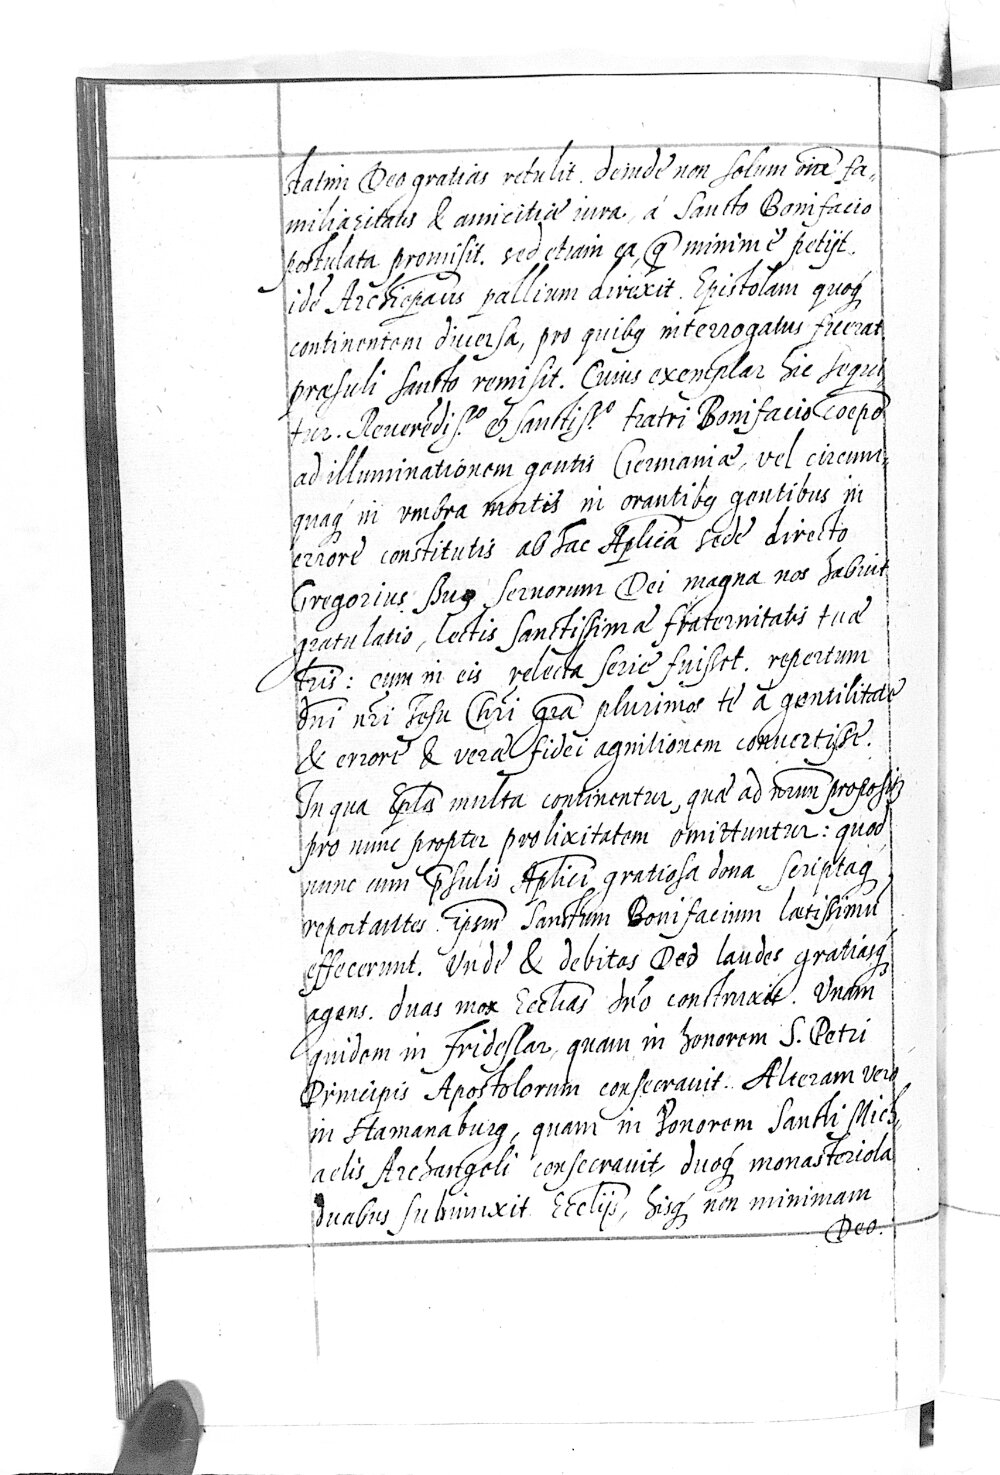 statim Deo gratias retulit. deinde non solum oīa fa-
miliaritatis & amicitiæ iura, á Sancto Bonifacio
postulata promisit. sed etiam ea, q̄ minimè petijt.
idē Archiepatus pallium direxit. Epistolam quoq́
continentem diuersa, pro quibq interrogatus fuerat
præsuli sancto remisit. Cuius exemplar hic sequi-
tur. Reuerēdis.º & sanctis.º fratri Bonifacio Coepō
ad illuminationem gentis Germaniæ, vel circum-
quaq́ in vmbra mortis in orantibq gentibus in
errore constitutis ab hac Aplica sede directo
Gregorius seruorum Dei magna nos habuit
gratulatio, lectis sanctissimæ fraternitatis tuæ
tris: cum in eis relecta serie fuisset. repertum
dn̄i nr̄i Jesu Chr̄i gr̄a plurimos te a gentilitate
& errore & veræ fidei agnitionem conuertisse.
In qua Ep̄la multa continentur, quæ ad nr̄um propositū
pro nunc propter prolixitatem omittuntur: quod
nunc cum p̄sulis Ap̄lici gratiosa dona scriptaq
reportantes ipsm̄ Sanctum Bonifacium lætissimū
effecerunt. Vnde & debitas Deo laudes gratiasq́
agens. duas mox Ecclīas Dn̄o construxit. Vnam
quidem in Frideslar, quam in honorem S. Petri
Principis Apostolorum consecrauit. Alteram vero
in Hamanaburg, quam in honorem Sancti Mich-
aelis Archangeli consecrauit, duoq́ monasteriola
duabus subiunxit Ecclijs, hisq́ non minimam
Deo.